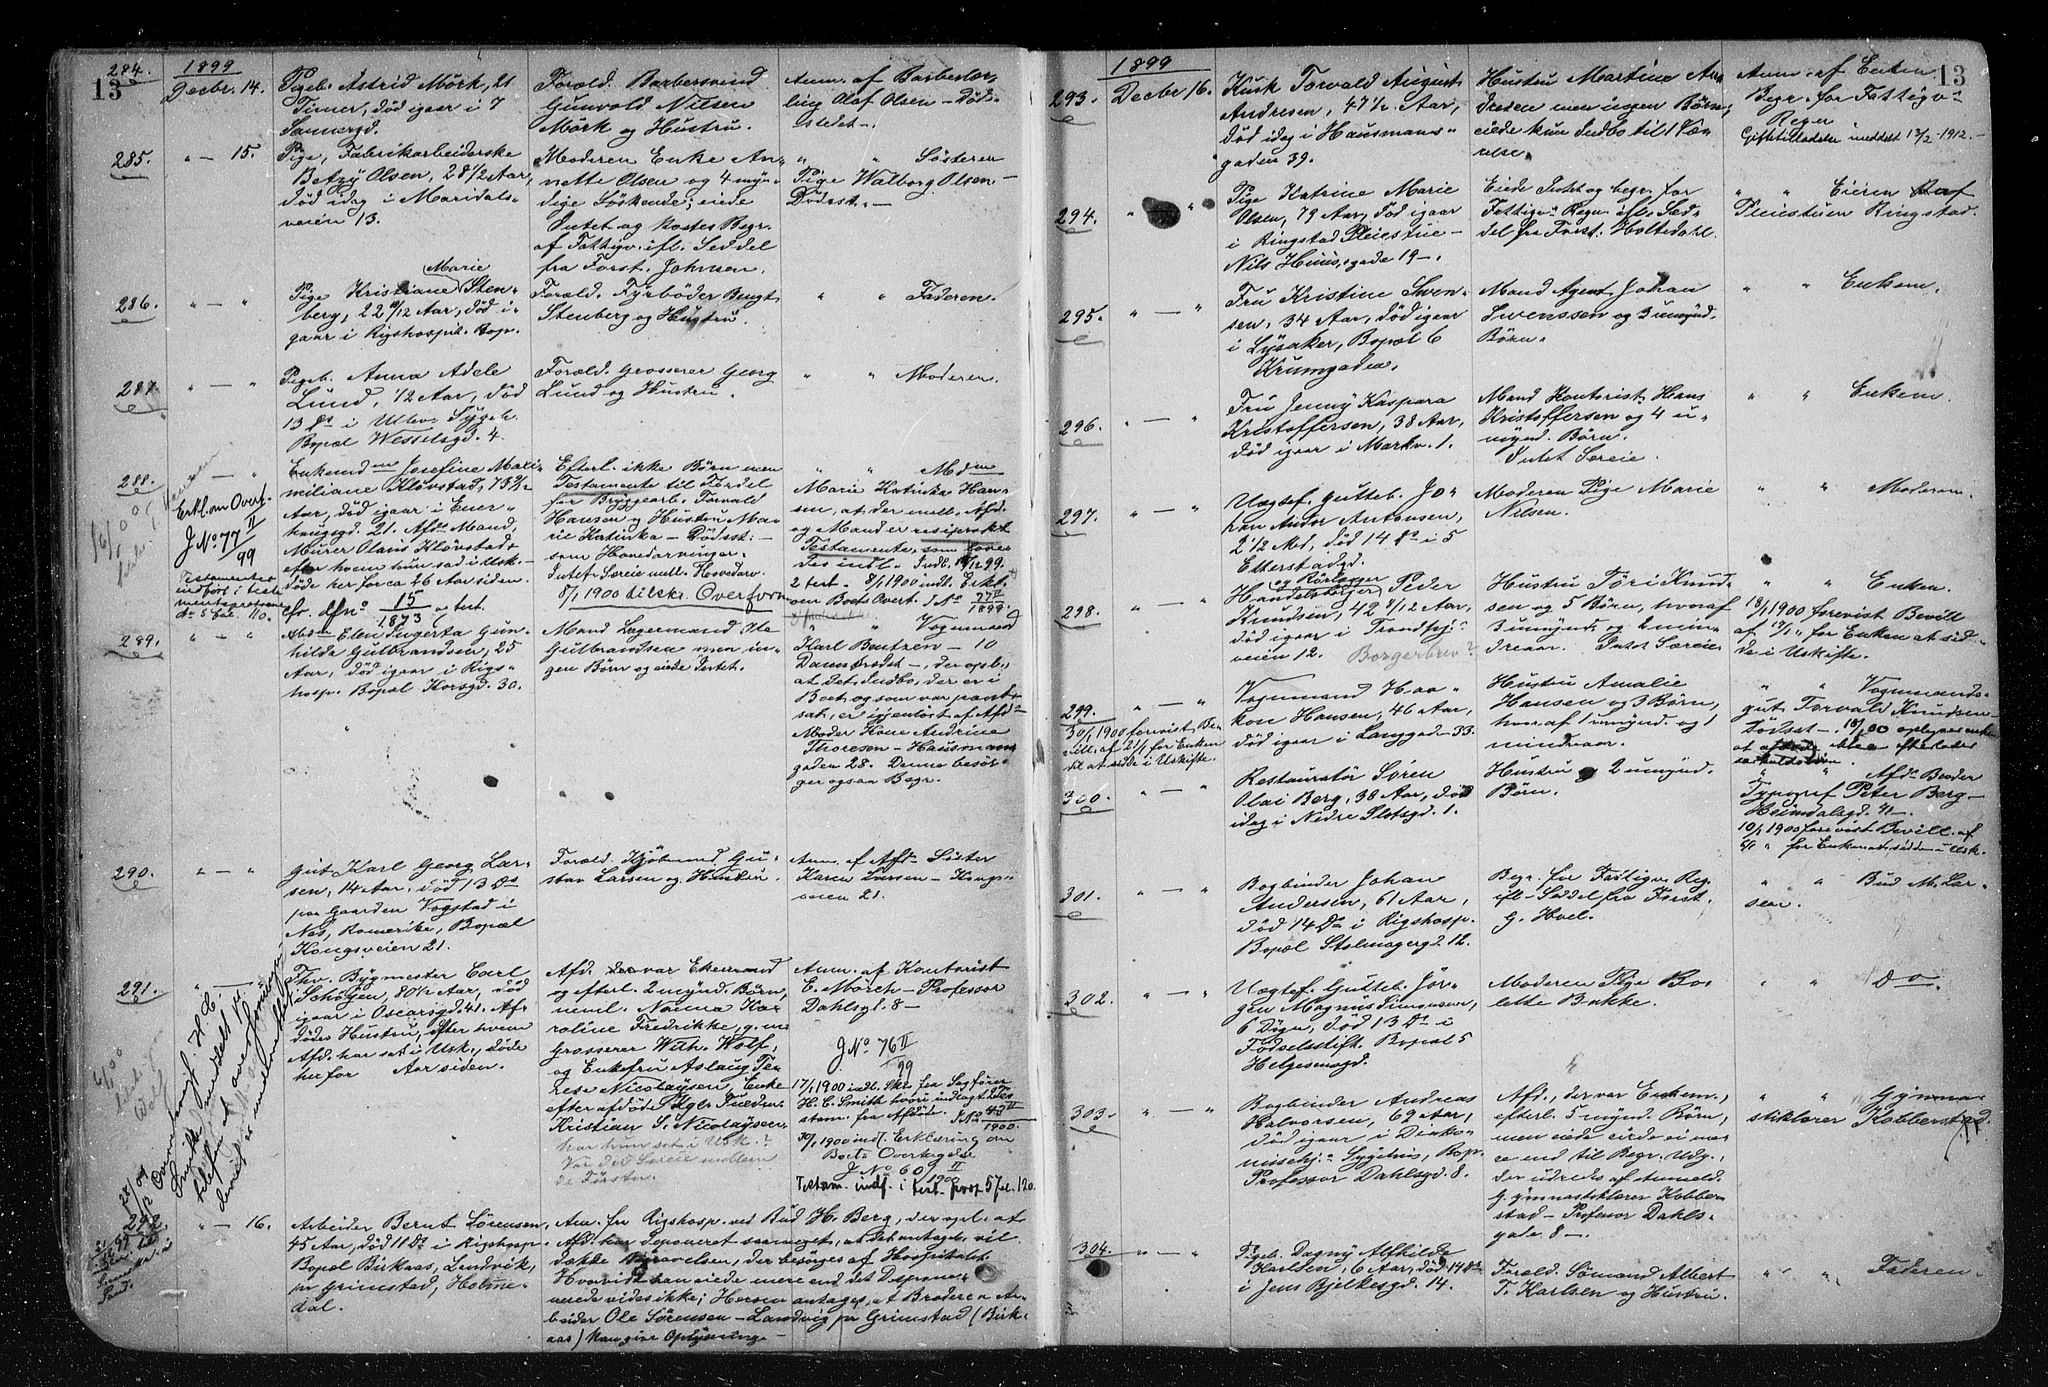 13
284.
1899
Decbr. 14.
Pigeb. Astrid Mörk, 21
Timer, död igaar i 7
Sannergd.
Foræld. Barbersvend
Gunvold Nilsen
Mörk og Hustru.
Anm. af Barberlær-
ling Olaf Olsen - Döds-
stedet.
285.
" — 15.
Pige, Fabrikarbeiderske
Betzy Olsen, 28 1/2 Aar,
död idag i Maridals-
veien 13.
Moderen Enke An-
nette Olsen og 4 myn-
dige Söskende; eiede
Intet og kostes Begr.
af Fattigv. ifl. Seddel
fra Forst. Johnsen.
" " Sösteren
Pige Walborg Olsen -
Dödsst. -
286.
" — "
Pige Kristiane Marie Sten-
berg, 22 10/12 Aar, död i-
gaar i Rigshospit. Bop.
Foræld. Fyrböder Bengt
Stenberg og Hustru.
" " Faderen.
287.
" — "
Pigeb. Anna Adele
Lund, 12 Aar, död
13 Ds i Ullev. Sygeh.
Bopæl Wesselsgd. 4.
Foræld. Grosserer Georg
Lund og Hustru.
" " Moderen.
288.
— "
Erkl. om Overt.
J No 77 II
99
Testamentet
indfört i testa-
mentsprotocol
No 5 fol. 110.
Enkemdm Josefine Maxi-
miliane Klövstad, 73 Aar, död igaar i Ener-
haugsgd. 21. Afds Mand,
Murer Olaus Klövstad,
efter hvem hun sad i Usk.
döde her for ca 26 Aar siden.
cfr. dfno 15
1873
Efterl. ikke Börn men
Testamente til Fordel
for Bryggearb. Torvald
Hansen og Hustru Ma-
rie Katinka - Dödsst. -
som Hovedarvinger.
Intet Særeie mell. Hovedarv.
8/1 1900 tilskr. Overform.
" " Mdm
Marie Katinka Han-
sen, at der mell. Afd.
og Mand er resiprokt
Testamente, som loves
indl. Indb. 18/12 99.
2 test. 8/1 1900 indl. Erkl.
om Boets Overt. J No 77 II
1899
289.
" "
Absm Elen Ingerta Gun-
hilda Gulbrandsen, 25
Aar, död igaar i Rigs-
hosp. Bopæl Korsgd. 30.
Mand Lagermand Ole
Gulbrandsen men in-
gen Börn og eiede Intet.
" " Vognmand
Karl Bentzen - 10
Damstrædet -, der opl.
at det Indbo, der er i
Boet, og som var pant-
sat, er igjenlöst af Afds
Moder Kone Andrine
Thoresen - Hausmanns-
gaden 28. Denne besör-
ger ogsaa Begr.
290.
" — "
Gut Karl Georg Lar-
sen, 14 Aar, död 13 Ds
paa Gaarden Vogstad i
Nes, Romerike, Bopæl
Kongsveien 21.
Foræld. Kjöbmand Gu-
stav Larsen og Hustru.
Anm. af Afds Söster
Karen Larsen - Kongs-
veien 21.
291.
" — "
Fhv. Bygmester Carl
Schöyen, 80 1/2 Aar, död
igaar i Oscarsgd. 41. Af-
dödes Hustru, efter hvem
Afd. har sat i Usk., döde
her for    Aar siden.
Afd. var Enkemand
og efterl. 2 mynd. Börn,
neml. Nanna Ka-
roline Fredrikke, g. m.
Grosserer Wilh. Wolf,
og Enkefru Aslaug Te-
rese Nicolaysen, Enke
efter afdöde
Kristian S. Nicolaysen
har hun sat i Usk.?
Var der Særeie mellem
de Förster.
Anm. af Kontorist
E. Mörch - Professor
Dahlsgt. 8 -
J. No 76 II
99
17/1 1900 indl. Skr. fra Sagförer
H. C. Smith hvori indlagt Te-
stam. fra Afdöde. J No 43 II
1900.
30/1 1900 indl. Erklæring om
Boets Overtagelse
J No 609 II
1900
Testam. indf. i test. prot. 5 fol. 120.
292.
" — 16.
Arbeider Bernt Sörensen,
45 Aar, död 11 Ds i Rigshosp.
Bopæl Birkaas, Landvik,
pr Grimstad, Holme-
dal.
Anm. fra Rigshosp. ved Bud H. Berg, der opl. at
Afd. har deponeret saameget, at det antagel. vil
dække Begravelsen, der besörges af Hospitalet.
Hvorvidt han eiede mere end det Depone-
rede vides ikke; Hersen antages, at Broderen Ar-
beider Ole Sörensen - Landvig pr Grimstad (Birk-
aas) kan give Oplysning -
13
1899
293.
Decbr 16.
Kusk Torvald August
Andresen, 47 1/2 Aar,
död idag i Hausmanns-
gaden 39.
Hustru Martine An-
dresen men ingen Börn;
eiede kun Indbo til 1 Væ-
relse.
Anm. af Enken
Begr. for Fattigv.
Regn
Giftetilladelse meddelt 13/2 - 1912. -
294.
" "
Pige Katrine Marie
Olsen, 79 Aar, död igaar
i Ringstad Pleiestue -
Nils Huus gade 19 -
Eiede Intet og begr. for
Fattigv. Regn. ifl. Sed-
del fra Forst. Holtedahl.
" " Eieren af
Pleiestuen Ringstad.
295.
" — "
Fru Kristine Swen-
sen, 34 Aar, död igaar
i Lysaker, Bopæl 6
Krumgaden.
Mand Agent Johan
Swenssen og 3 umynd.
Börn.
" " Enkem.
296.
" — "
Fru Jenny Kaspara
Kristoffersen, 38 Aar,
död igaar i Markv. 1.
Mand Kontorist Hans
Kristoffersen og 4 u-
mynd. Börn.
Intet Særeie.
" " Enkem.
297.
" — "
Uægtef. Gutteb. Jo-
han Antonsen,
2 1/2 Md, död 14 Ds i 5
Etterstadgd.
Moderen Pige Marie
Nilsen.
" " Moderen.
298.
" — "
og Rörlegger
Handelsborger Peder
Knudsen, 49 9/12 Aar,
död igaar i Trondhj.-
veien 12. Borgerbrev?
Hustru Tori Knud-
sen og 5 Börn, hvoraf
3 umynd. og 2 min-
dreaar. Intet Særeie.
" " Enken.
18/1 1900 forevist Bevill.
af 17/1 " for Enken at sid-
de i Uskifte.
299.
" — "
30/1 1900 forevist Be-
vill. af 27/1 for Enken
til at sidde i Uskifte.
Vognmand Haa-
kon Hansen, 46 Aar,
död igaar i Langgad. 33.
Hustru Amalie
Hansen og 3 Börn,
hvoraf 1 umynd. og 1
mindreaar.
" " Vognmands-
gut Torvald Knudsen -
Dödsst. - 18/1 00 oplyser enken
at afdöde ikke efterlader
300.
" — "
Restauratör Sören
Olai Berg, 38 Aar, död
idag i Nedre Slotsgd. 1.
Hustru og 2 umynd.
Börn.
" " Afds Broder
Typograf Peter Berg -
Heimdalsgd. 41 -
10/1 1900 forevist Bevill. af
" for Enken at sidde i Usk.
301.
" — "
Bogbinder Johan
Andersen, 61 Aar,
död 14 Ds i Rigshosp.
Bopæl Stolmagergd. 12.
Begr. for Fattigv. Reg.
ifl. Seddel fra Forst.
G. Hoel.
" " Bud M. Lar-
sen.
302.
" — "
Uægtef. Gutteb. Jör-
gen Magnus Simensen,
6 Dögn, död 13 Ds i
Födselsstift. Bopæl 5
Helgesensgd.
Moderen Pige Bo-
lette Bakke.
" " Do
303.
" — "
Bogbinder Andreas
Halvorsen, 69 Aar,
död igaar i Diako-
nissehj.s Sygehus, Bop.
Professor Dahlsgd. 8.
Afd., der var Enkem.,
efterl. 5 mynd. Börn,
men eiede ei me-
re end til Begr. Udg.,
der udredes af Anmeld.
Gymnastiklærer Kobber-
stad - Professor Dahls-
gade 8 -.
" " Gymna-
stiklærer Kobberstad.
304.
" — "
Pigeb. Dagny Alfhilda
Karlsen, 6 Aar, död 14 Ds
i Jens Bjelkesgd. 14.
Foræld. Sömand Albert
T. Karlsen og Hustru.
" " Faderen -